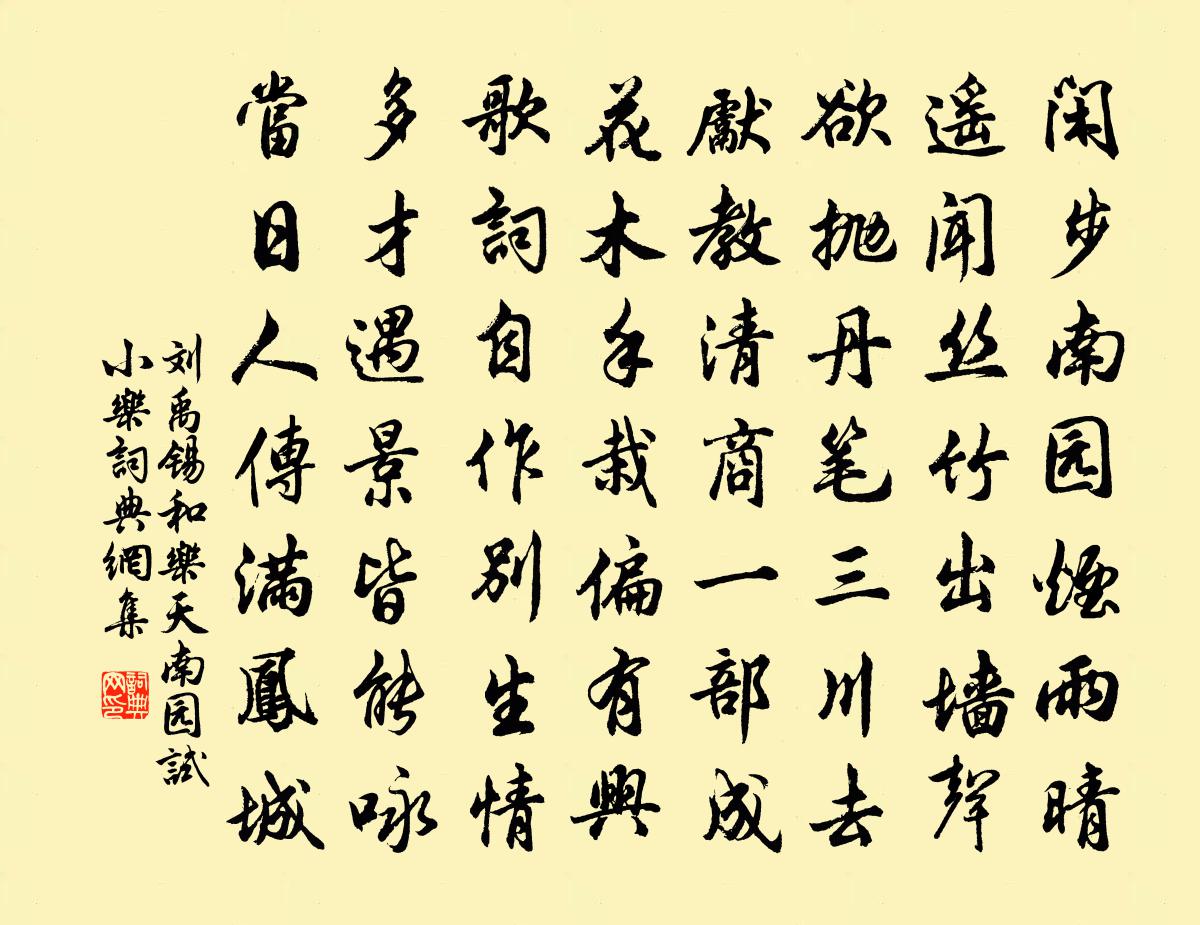 闲步南园煙雨晴
遥闻丝竹出墙聲
欲抛丹笔三川去
獻教清商一部成
花木手栽偏有興
歌詞自作别生情
多才遇景皆能咏
當日人傳满鳳城
刘禹锡和樂天南园試
小樂詞典網集
詞典网印